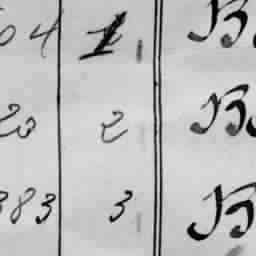 04 1 B
20 2 B
383 3 B